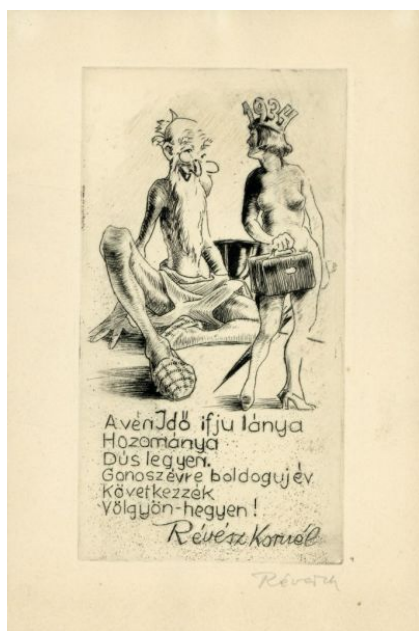 193
A vén Idő ifju lánya
Hozománya
Dús legyen.
Gonosz évre boldog uj év
Következzék
Völgyön-hegyen!
Révész Kornél